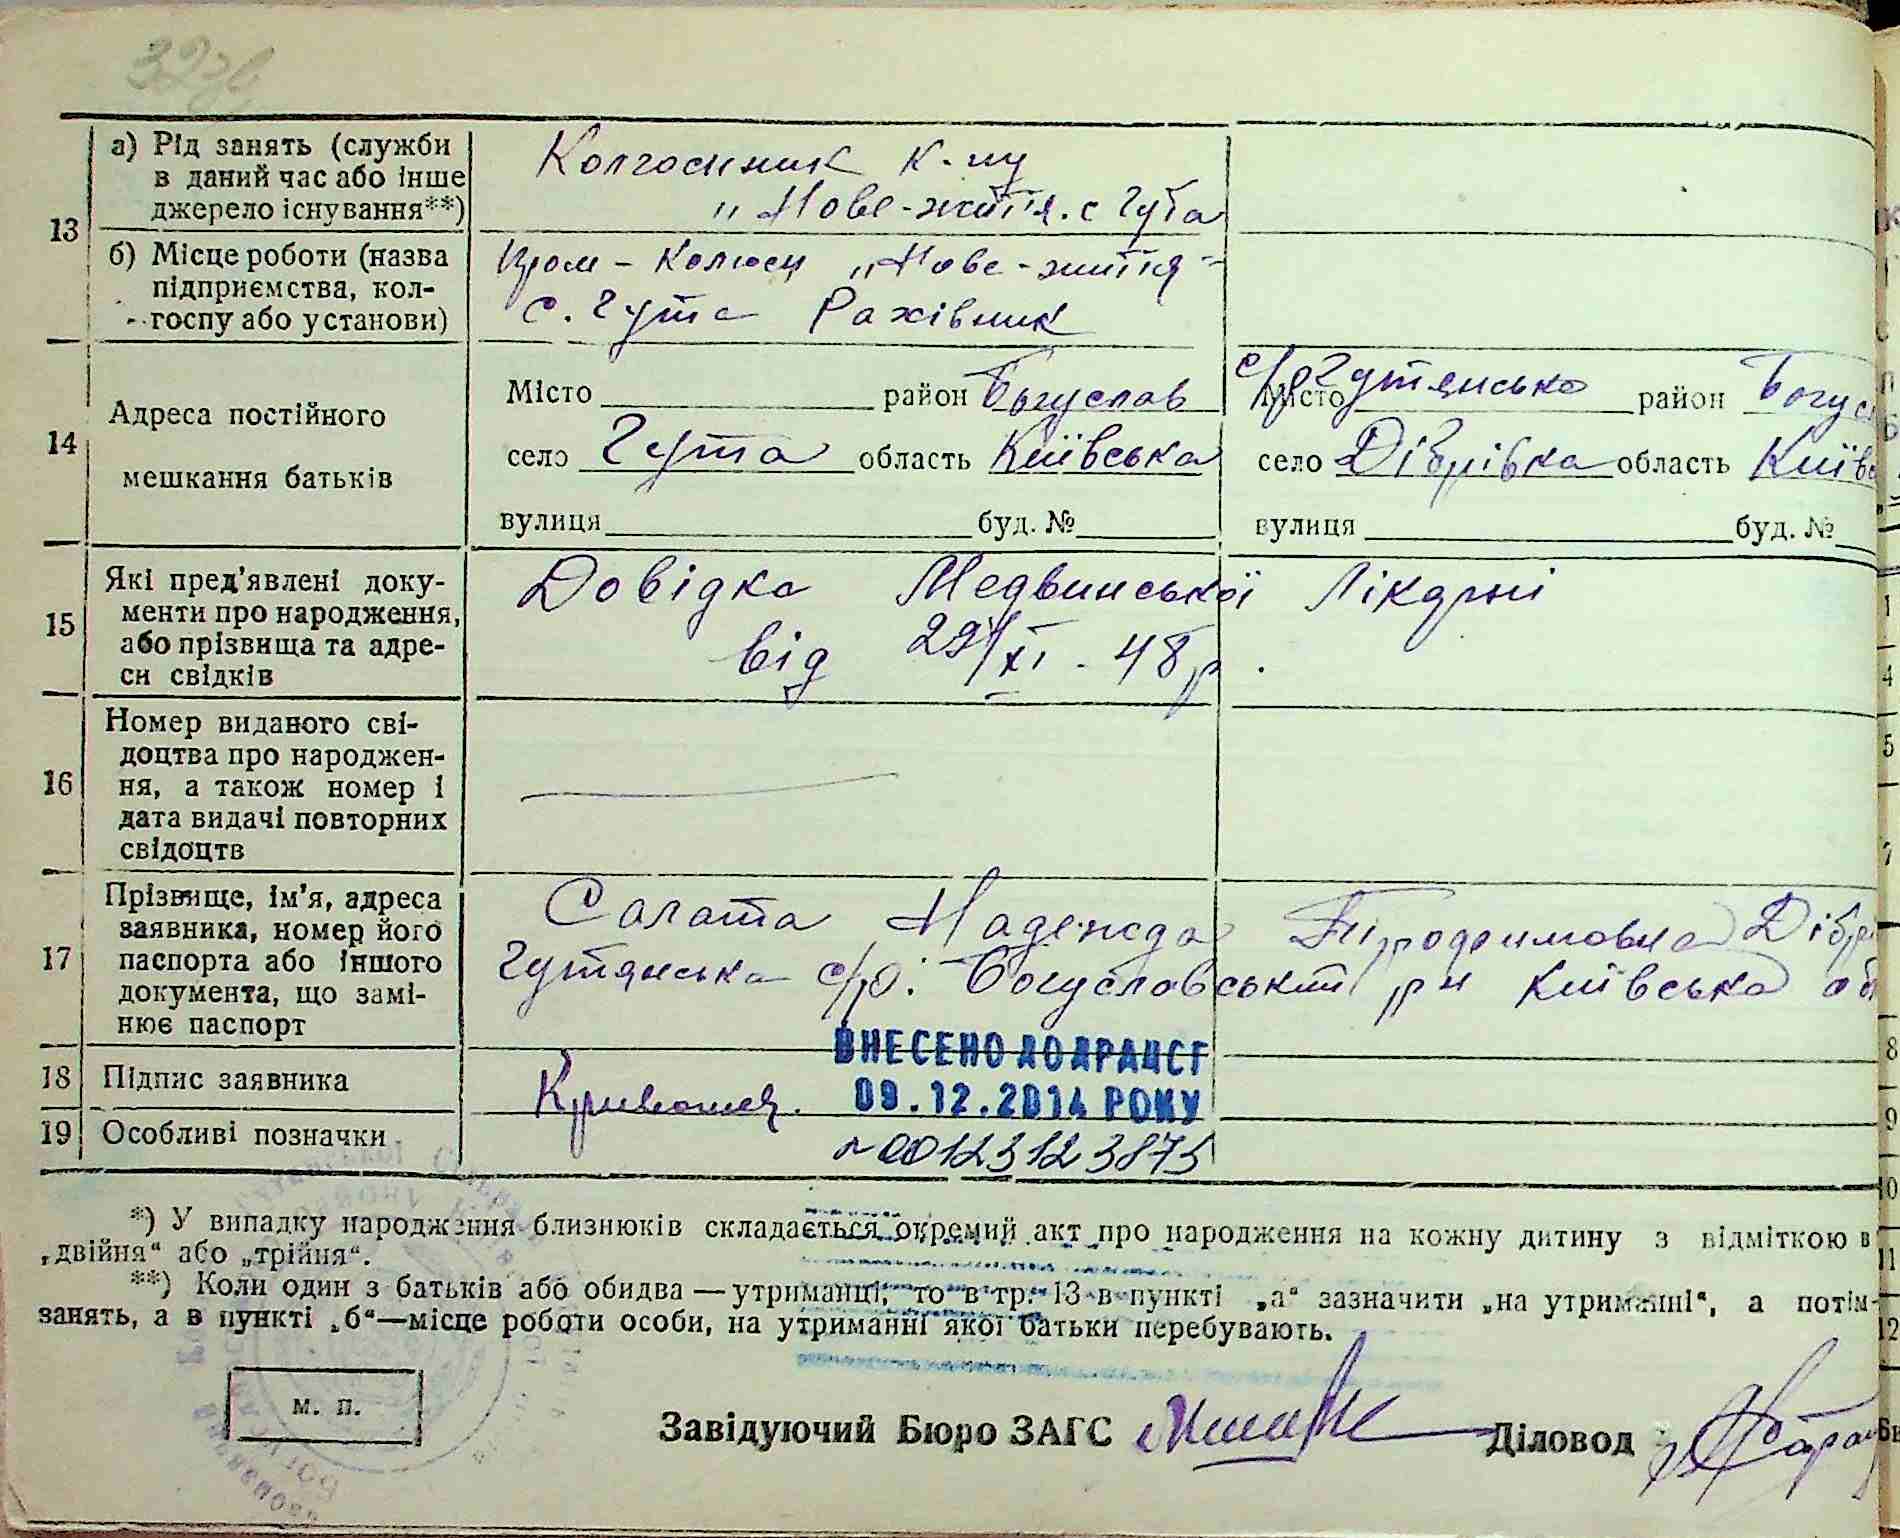 327
13
а) Рід занять (служби
в даний час або інше
джерело існування**)
Колгоспник к-пу
„Нове-життя. с Гута
б) Місце роботи (назва
підприємства, кол-
госпу або установи)
„Нове-життя"
с. Гута Рахівник
14
Адреса постійного
мешкання батьків
Місто район Богуслав
село Гута область Київська
вулиця буд. №
с/р Гутянська
Місто район Богус
село Дібрівка область Київс
вулиця буд. №
15
Які пред'явлені доку-
менти про народження,
або прізвища та адре-
си свідків
Довідка Медвинської Лікарні
від 29/XI - 48 р.
16
Номер виданого сві-
доцтва про народжен-
ня, а також номер і
дата видачі повторних
свідоцтв
17
Прізвище, ім'я, адреса
заявника, номер його
паспорта або іншого
документа, що замі-
нює паспорт
Салата Надежда Дібр
Гутянська с/р. Богуславський рн Київська об
18 Підпис заявника
ВНЕСЕНО ДО ДРАЦСГ
09.12.2014 РОКУ
19 Особливі позначки
№ 00123123875
*) У випадку народження близнюків складається окремий акт про народження на кожну дитину з відміткою в
„двійня“ або „трійня“.
**) Коли один з батьків або обидва — утриманці, то в гр. 13 в пункті „а“ зазначити „на утриманні“, а потім
занять, а в пункті „б“—місце роботи особи, на утриманні якої батьки перебувають.
м. п.
Завідуючий Бюро ЗАГС Діловод